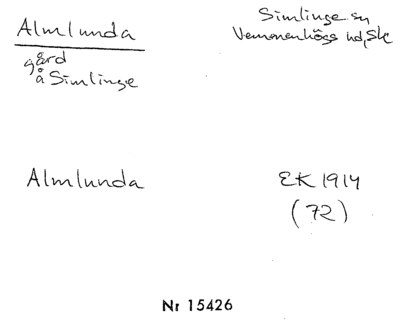 Almlunda
Simlinge sn
Vemmenhögs hd, Sk
gård
å Simlinge
Almlunda
EK 1914
(72)
Nr 15426